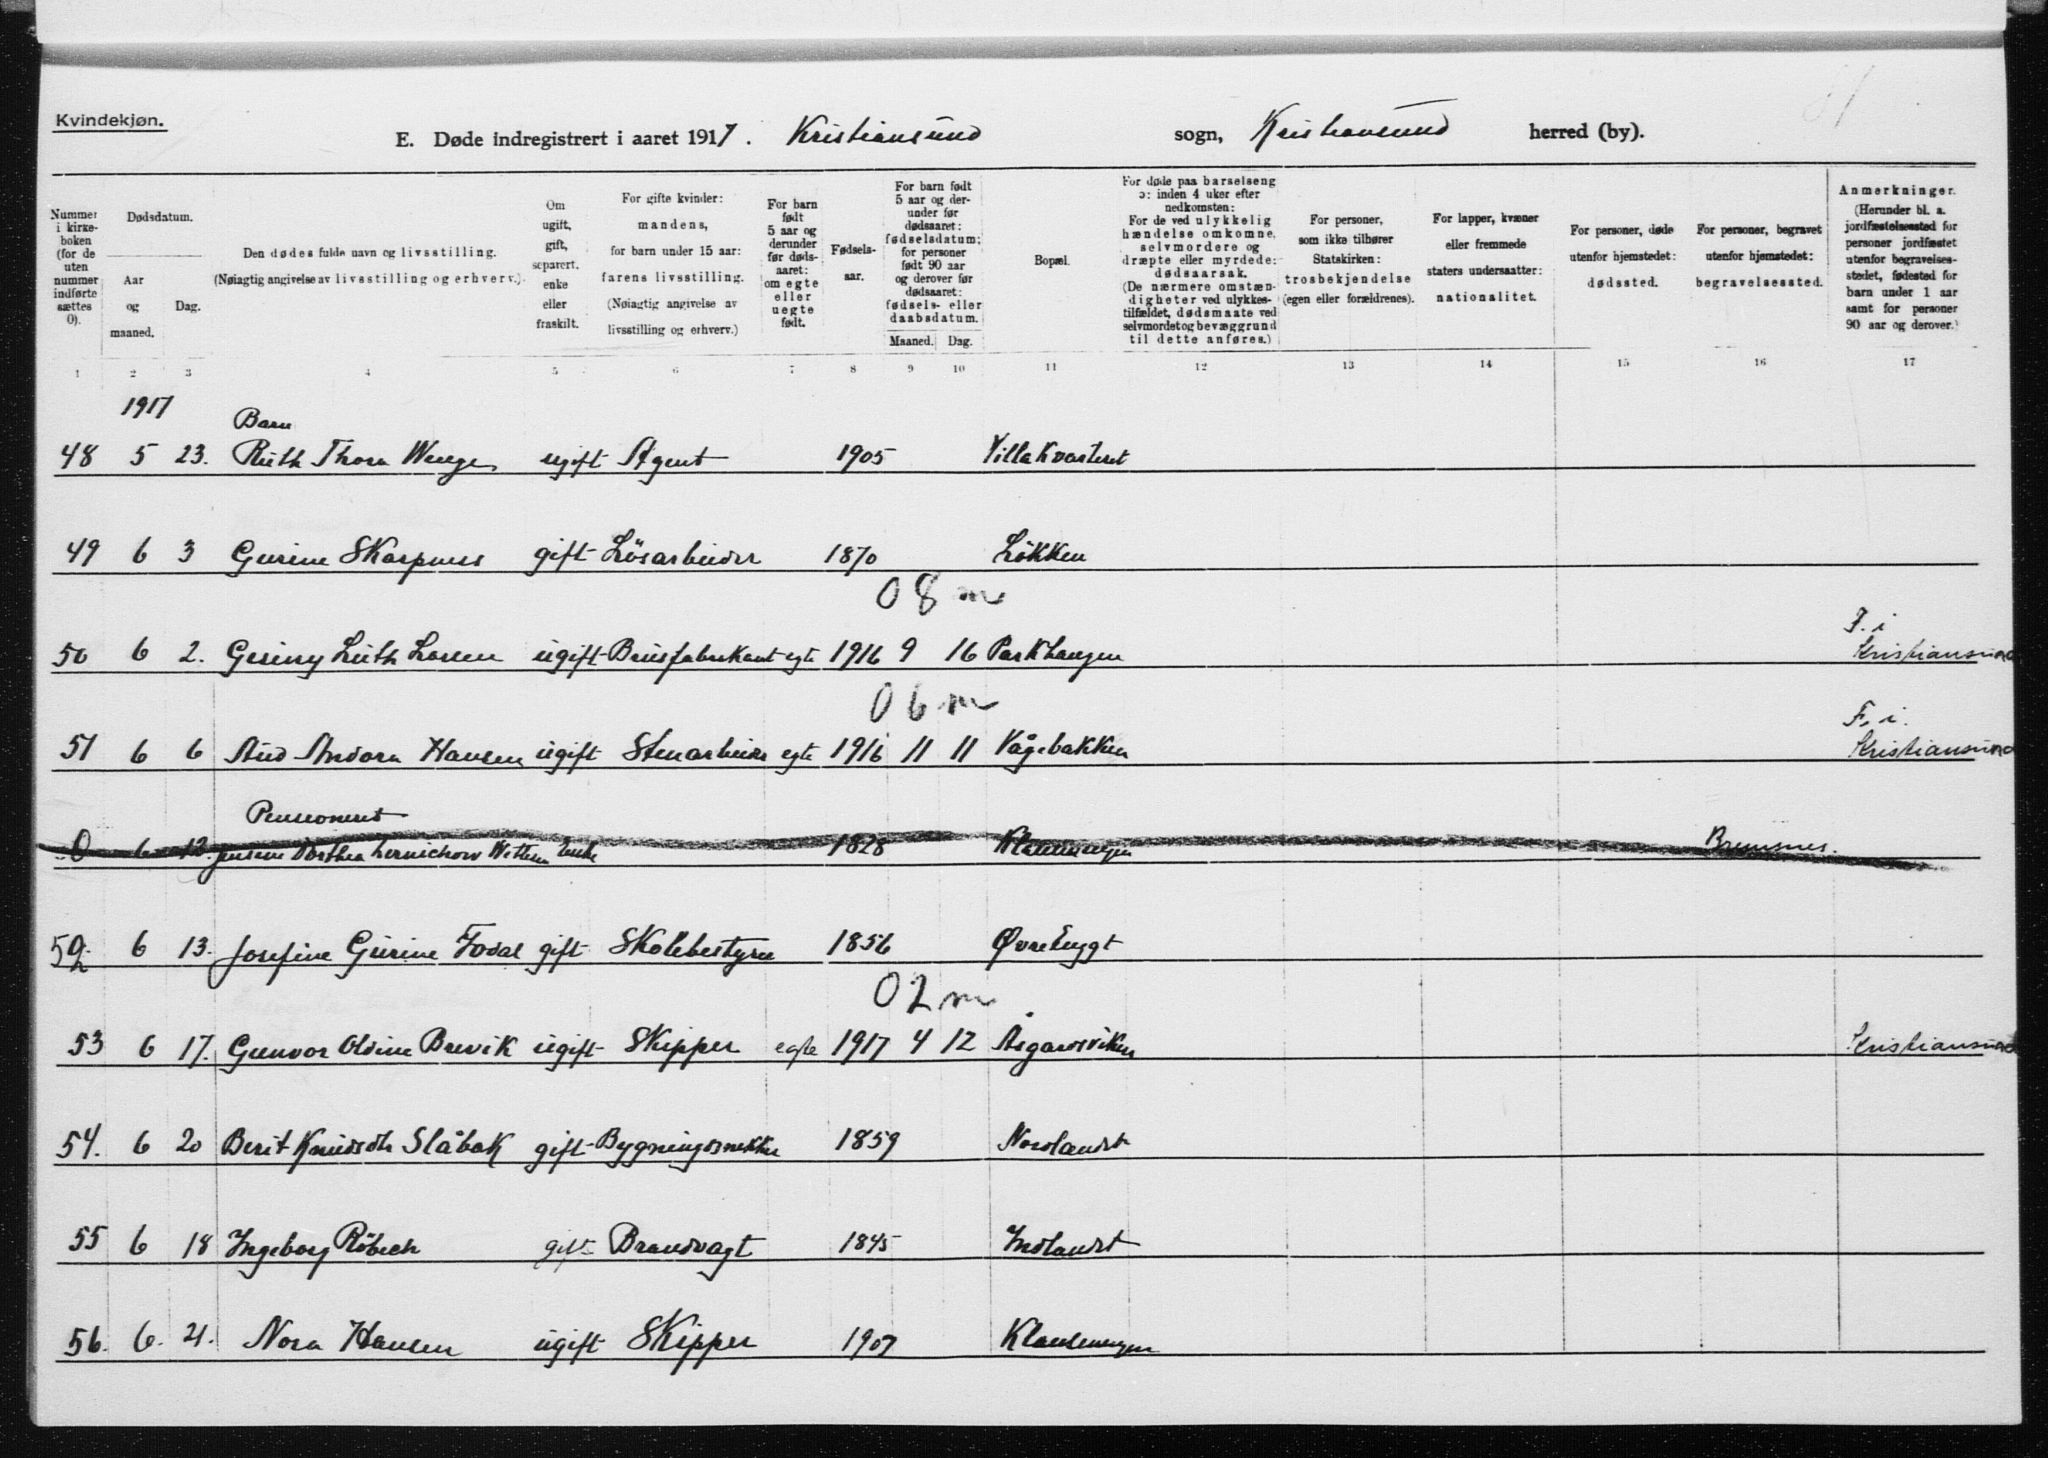 81
Kvindekjøn.
E. Døde indregistrert i aaret 1917. Kristiansund sogn, Kristiansund herred (by).
Nummer i kirkeboken (for de uten nummer indførte sættes 0).
Dødsdatum.
Aar og maaned.
Dag.
Den dødes fulde navn og livsstilling.
(Nøiagtig angivelse av livsstilling og erhverv.)
Om ugift, gift, separert, enke eller fraskilt.
For gifte kvinder: mandens, for barn under 15 aar: farens livsstilling.
(Nøiagtig angivelse av livsstilling og erhverv.)
For barn født 5 aar og derunder før dødsaaret: om egte eller uegte født.
Fødselsaar.
For barn født 5 aar og derunder før dødsaaret: fødselsdatum; for personer født 90 aar og derover før dødsaaret: fødsels- eller daabsdatum.
Maaned. Dag.
Bopæl.
For døde paa barselseng ɔ: inden 4 uker efter nedkomsten:
For de ved ulykkelig hændelse omkomne, selvmordere og dræpte eller myrdede: dødsaarsak.
(De nærmere omstændigheter ved ulykkestilfældet, dødsmaate ved selvmordet og bevæggrund til dette anføres.)
For personer, som ikke tilhører Statskirken: trosbekjendelse (egen eller forældrenes).
For lapper, kvæner eller fremmede staters undersaatter: nationalitet.
For personer, døde utenfor hjemstedet: dødssted.
For personer, begravet utenfor hjemstedet: begravelsessted.
Anmerkninger.
(Herunder bl. a. jordfæstelsessted for personer jordfæstet utenfor begravelsesstedet, fødested for barn under 1 aar samt for personer 90 aar og derover.)
1 2 3 4 5 6 7 8 9 10 11 12 13 14 15 16 17
1917
Barn
48 5 23. Ruth Thora Wenge ugift Agent 1905 Villakvarteret
49 6 3 Gurine Skarpnes gift Løsarbeider 1870 Løkken
08 m
F. i
50 6 2. Loren ugift Brusfabrikant egte 1916 9 16 Parkhaugen Kristiansund
06 m
F. i.
51 6 6 Aud Andora Hansen ugift Stenarbeider egte 1916 11 11 Vågebakken Kristiansund
Pensionert
0 6 12. Jensine Dorthea Enke 1828 Klausenengen Bremsnes.
52 6 13. Josefine Gurine Fodal gift Skolebestyrer 1856 Øvre Enggt
02 m
53 6 17. Gunvor Oldine Brevik ugift Skipper egte 1917 4 12 Åsgardsviken Kristiansund
54. 6 20 Berit Knudsdtr Slåbak gift Bygningssnekker 1859 Nordlandet
55 6 18 Ingeborg Röbech gift Brandvagt 1845 Indlandet
56. 6. 21. Nora Hansen ugift Skipper 1907 Klausenengen